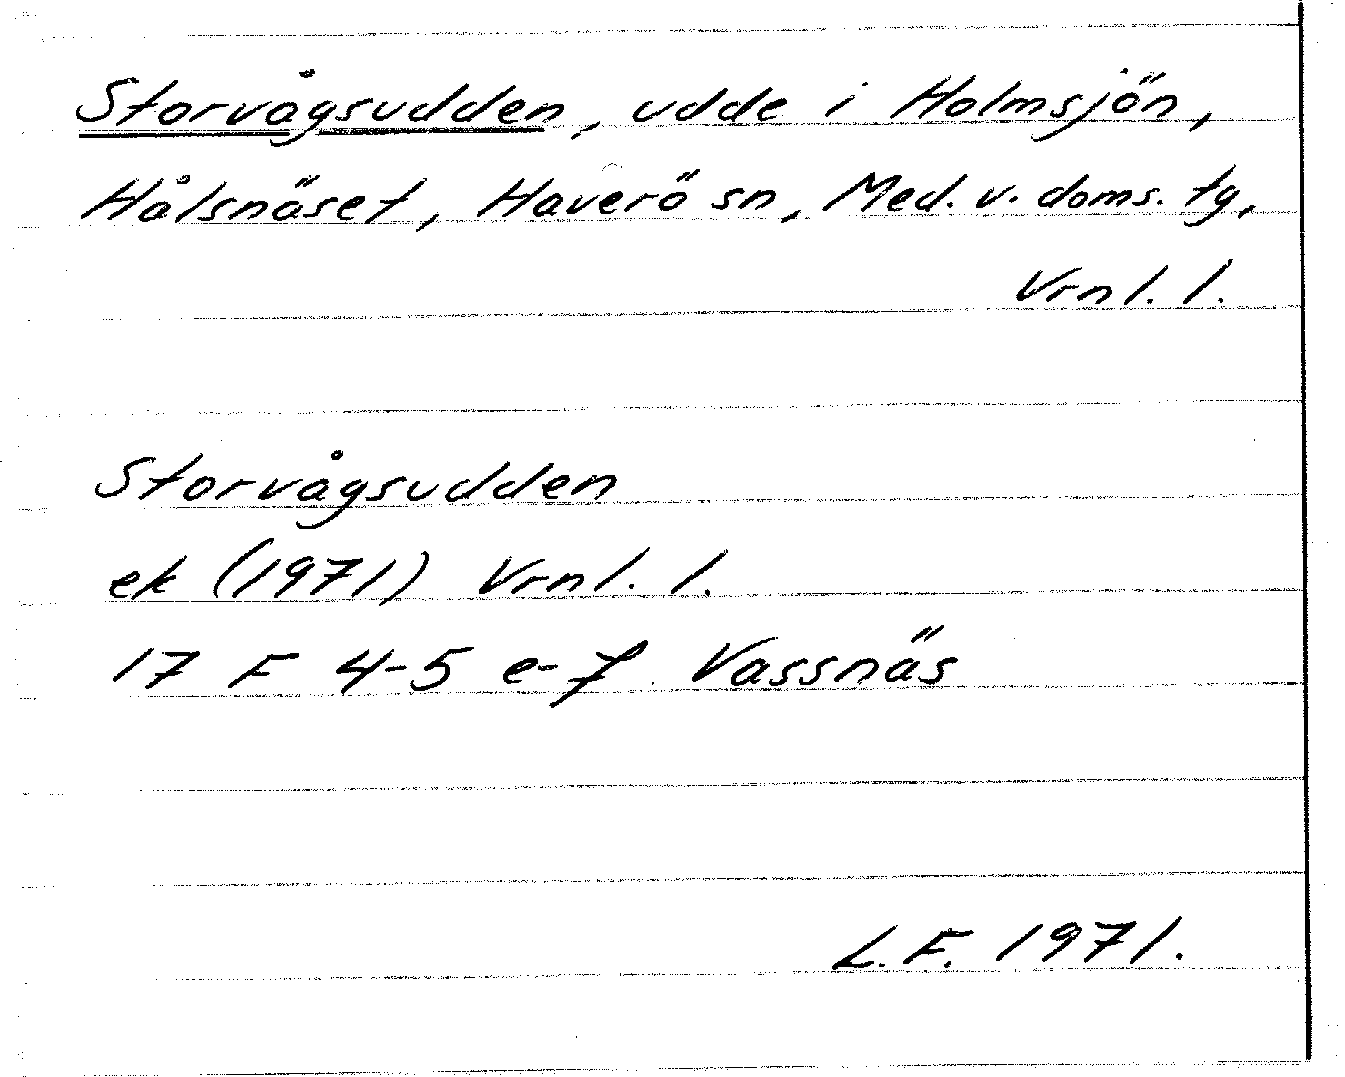 Storvågsudden, udde i Holmsjön,
Hålsnäset, Haverö sn, Med. v. doms. tg,
Vrnl. l.
Storvågsudden
ek (1971) Vrnl. l.
17 F 4-5 e-f Vassnäs
L.F. 1971.